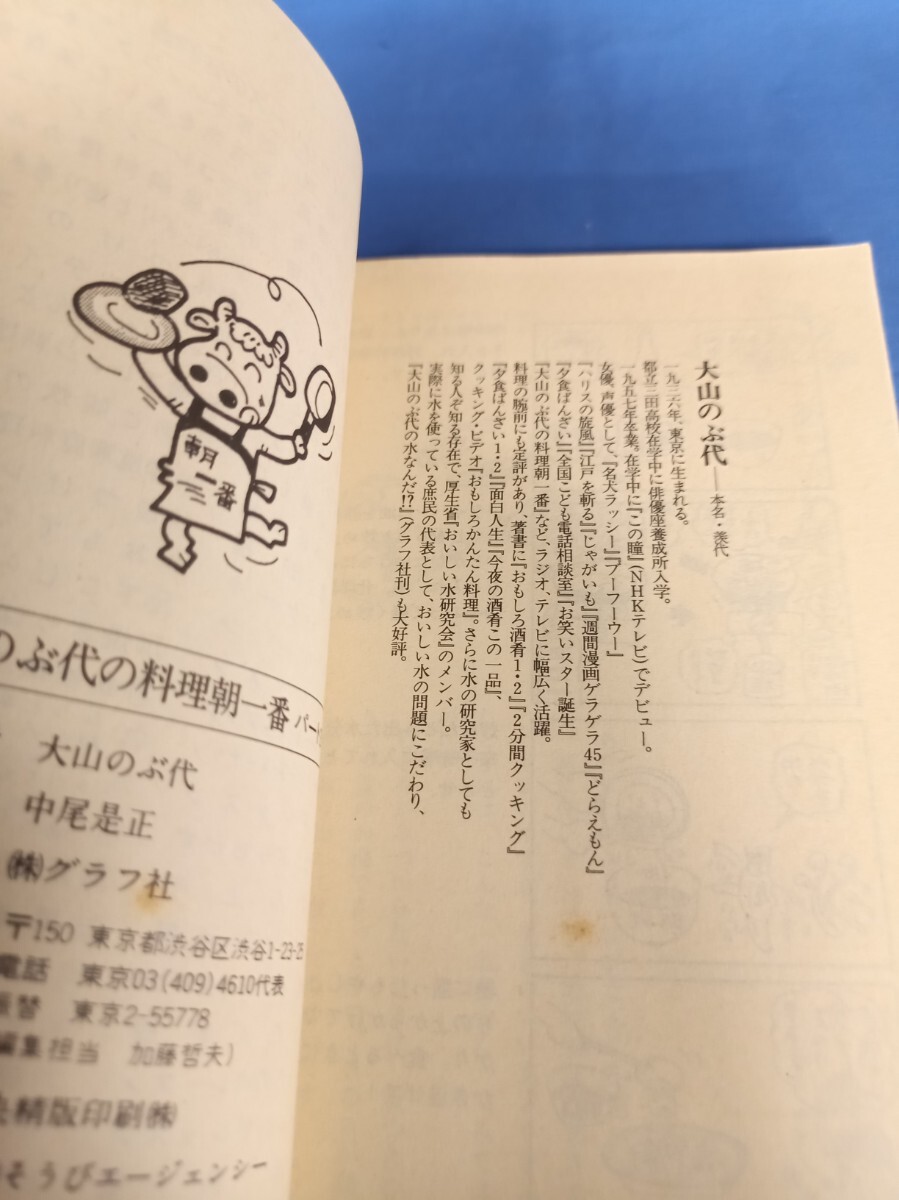 大山のぶ代——本名・羨代
一九三六年、東京に生まれる。
都立三田高校在学中に俳優座養成所入学。
一九五七年卒業。在学中に『この瞳』(NHKテレビ)でデビュー。
女優、声優として、『名犬ラッシー』『ブーフーウー』
『ハリスの旋風』『江戸を斬る』『じゃがいも』『週間漫画ゲラゲラ45』『どらえもん』
『夕食ばんざい』『全国こども電話相談室』『お笑いスター誕生』
『大山のぶ代の料理朝一番』など、ラジオ、テレビに幅広く活躍。
料理の腕前にも定評があり、著書に『おもしろ酒肴1・2』『2分間クッキング』
『夕食ばんざい1・2』『面白人生』『今夜の酒肴この一品』、
クッキング・ビデオ『おもしろかんたん料理』。さらに水の研究家としても
知る人ぞ知る存在で、厚生省『おいしい水研究会』のメンバー。
実際に水を使っている庶民の代表として、おいしい水の問題にこだわり、
『大山のぶ代の水なんだ!?』(グラフ社刊)も大好評。
朝一番
のぶ代の料理朝一番 パート
大山のぶ代
中尾是正
㈱グラフ社
〒150 東京都渋谷区渋谷1-23-
電話 東京03(409)4610代表
振替 東京2-55778
編集担当 加藤哲夫)
精版印刷㈱
そうびエージェンシー